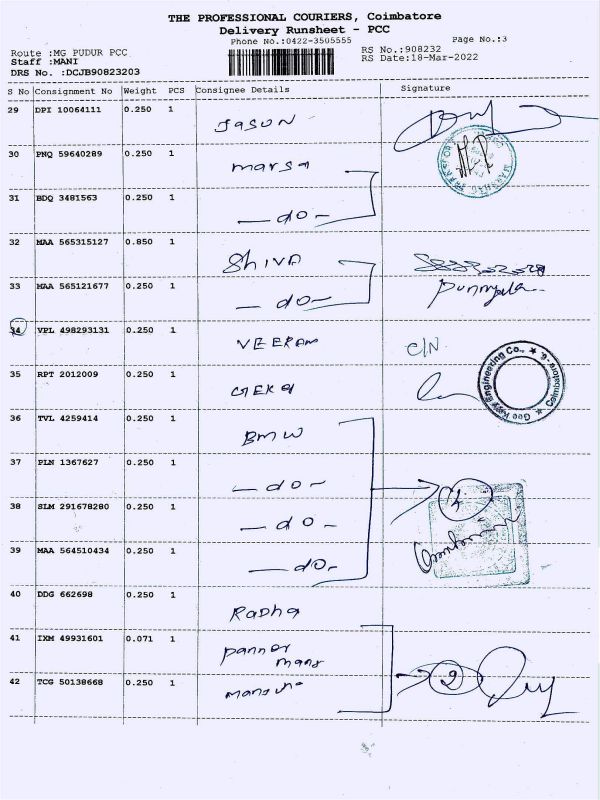 THE PROFESSIONAL COURIERS, Coimbatore
Delivery Runsheet - PCC
Phone No.:0422-3505555 Page No.:3
Route :MG PUDUR PCC RS No.:908232
Staff :MANI RS Date:18-Mar-2022
DRS No. :DCJB90823203
S No Consignment No Weight PCS Consignee Details Signature
29 DPI 10064111 0.250 1 Jason
30 PNQ 59640289 0.250 1 marsa
31 BDQ 3481563 0.250 1 — do —
32 MAA 565315127 0.850 1 Shiva
33 MAA 565121677 0.250 1 — do —
34 VPL 498293131 0.250 1 VEERAM C/N
35 RPT 2012009 0.250 1 GEKA
Gee Kay Engineering Co., ★ Coimbatore - 6. ★
36 TVL 4259414 0.250 1 BMW
37 PLN 1367627 0.250 1 — do —
38 SLM 291678280 0.250 1 — do — 4
39 MAA 564510434 0.250 1 — do —
40 DDG 662698 0.250 1 Radha
41 IXM 49931601 0.071 1 panner
mans
42 TCG 50138668 0.250 1 2